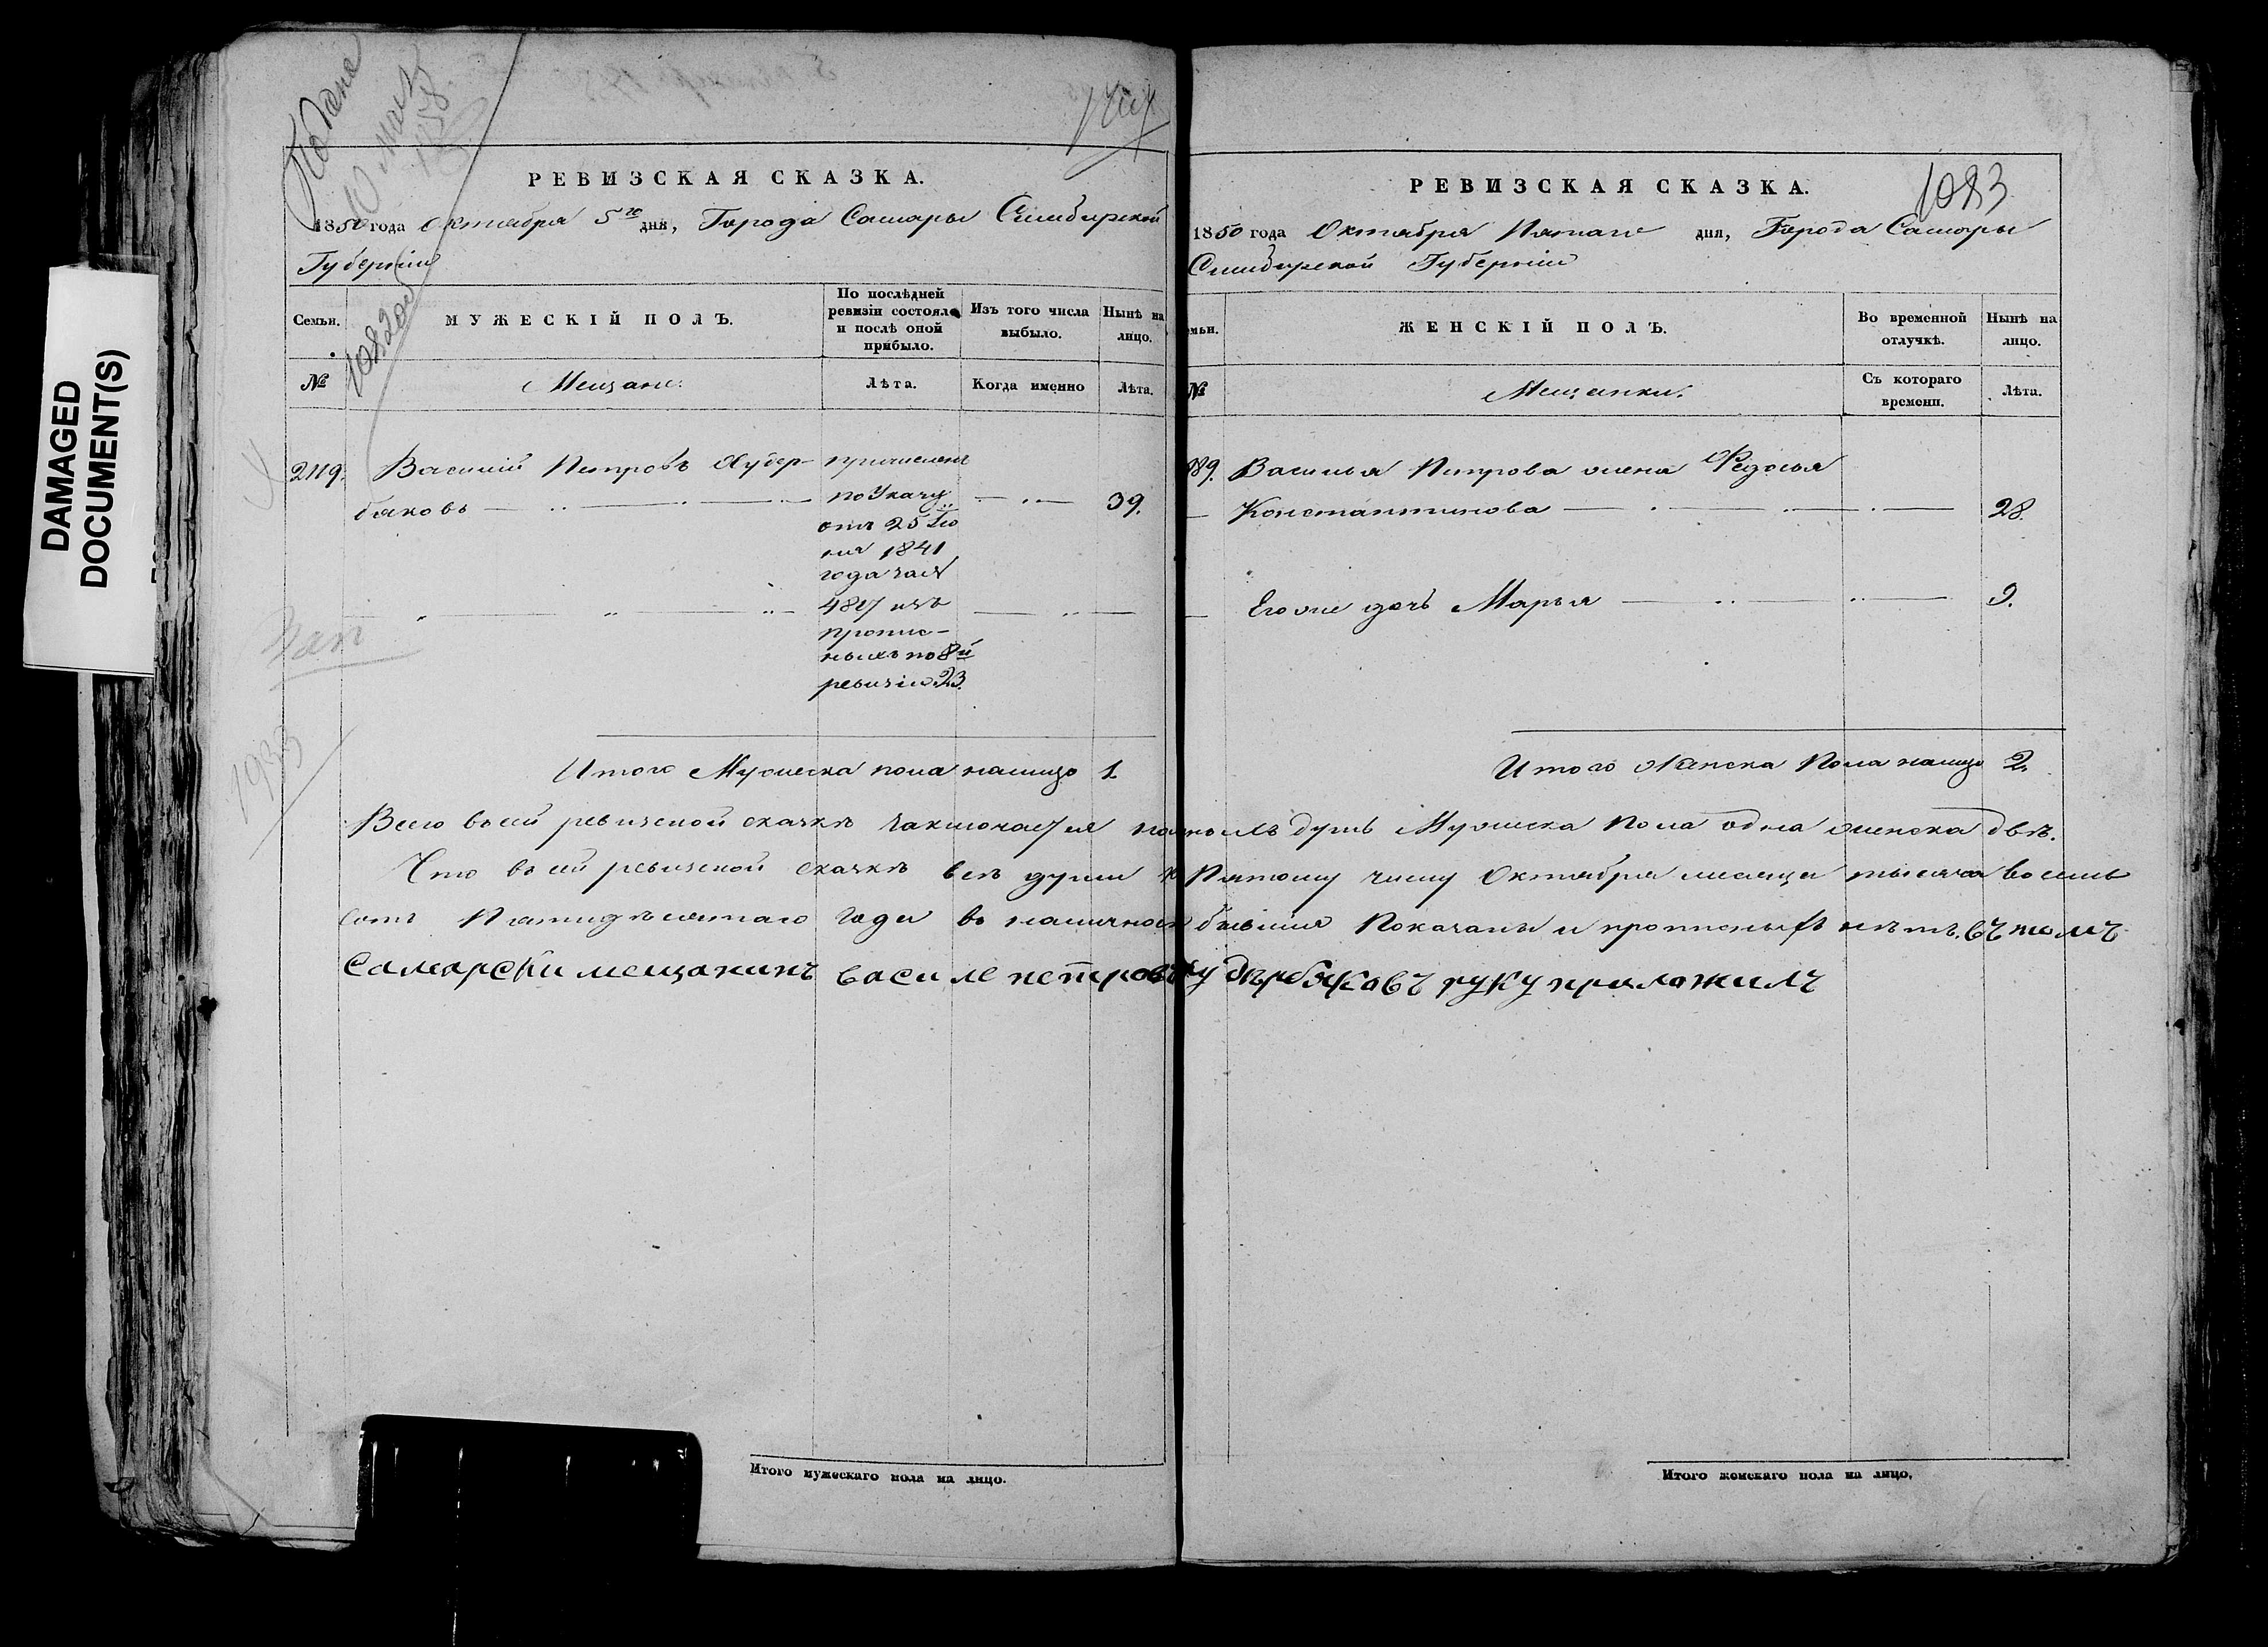 DAMAGED
DOCUMENT(S)
Подана
10 Мая
1083
РЕВИЗСКАЯ СКАЗКА.
1850 года Октября 5го дня, Города Самары Симбирской
Губерніи
Семьи.
МУЖЕСКІЙ ПОЛЪ.
По послѣдней
ревизіи состояло
и послѣ оной
прибыло.
Изъ того числа
выбыло.
Нынѣ на
лицо.
№
Мещане:
Лѣта.
Когда именно
Лѣта.
Василій Петровъ Худер-
бяковъ
39.
причисленъ
по Указу
отъ 25 Iю
ня 1841
года за №
4817 изъ
пропис-
ныхъ по 8й
ревизіи 23.
Итого Мужеска пола налицо 1.
РЕВИЗСКАЯ СКАЗКА.
1850 года Октября Пятаго дня, Города Самары
Симбирской Губерніи
ЖЕНСКІЙ ПОЛЪ.
Во временной
отлучкѣ.
Нынѣ на
лицо.
№
Мещанки.
Съ котораго
времени.
Лѣта.
Василья Петрова жена Федосья
Константинова 28.
Его же дочь Марья 9.
Итого Женска Пола налицо 2.
Всего въ сей ревизской сказкѣ заключается душъ Мужеска Пола одна женска двѣ.
Что въ сей ревизской сказкѣ всѣ души къ Пятому числу Октября месяца тысяча восемь
сотъ Пятидѣсятаго года въ наличности бывшия Показаны и прописныхъ нѣтъ. въ томъ
Самарски мещанинъ василе петровъ худѣрбяковъ руку приложилъ
Итого мужескаго пола на лицо.
Итого женскаго пола на лицо.